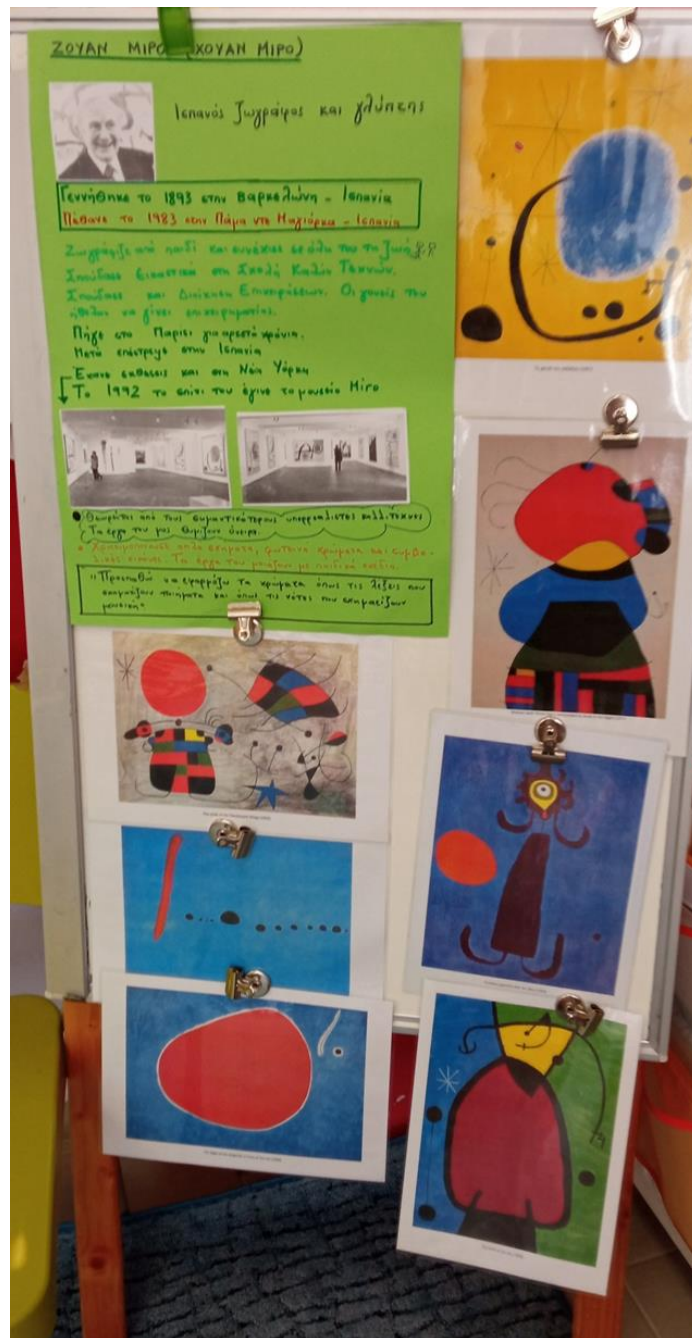 ΖΟΥΑΝ ΜΙΡΟ (ΧΟΥΑΝ ΜΙΡΟ)
Ισπανός ζωγράφος και γλύπτης
Γεννήθηκε το 1893 στην Βαρκελώνη - Ισπανία
Πέθανε το 1983 στην Πάμα ντε Μαγιόρκα - Ισπανία
Ζωγράφιζε από παιδί και συνέχισε σε όλη του τη ζωή
Σπούδασε Εικαστικά στη Σχολή Καλών Τεχνών.
Σπούδασε και Διοίκηση Επιχειρήσεων. Οι γονείς του
ήθελαν να γίνει επιχειρηματίας.
Πήγε στο Παρίσι για αρκετά χρόνια.
Μετά επέστρεψε στην Ισπανία
Έκανε εκθέσεις και στη Νέα Υόρκη
Το 1992 το σπίτι του έγινε το μουσείο Miro
Θεωρείται από τους σημαντικότερους υπερρεαλιστές καλλιτέχνες
Τα έργα του μας θυμίζουν όνειρα.
Χρησιμοποιούσε απλά σχήματα, φωτεινά χρώματα και συμβο-
λικές εικόνες. Τα έργα του μοιάζουν με παιδικά σχέδια.
"Προσπαθώ να εφαρμόζω τα χρώματα όπως τις λέξεις που
σχηματίζουν ποιήματα και όπως τις νότες που σχηματίζουν
μουσική"